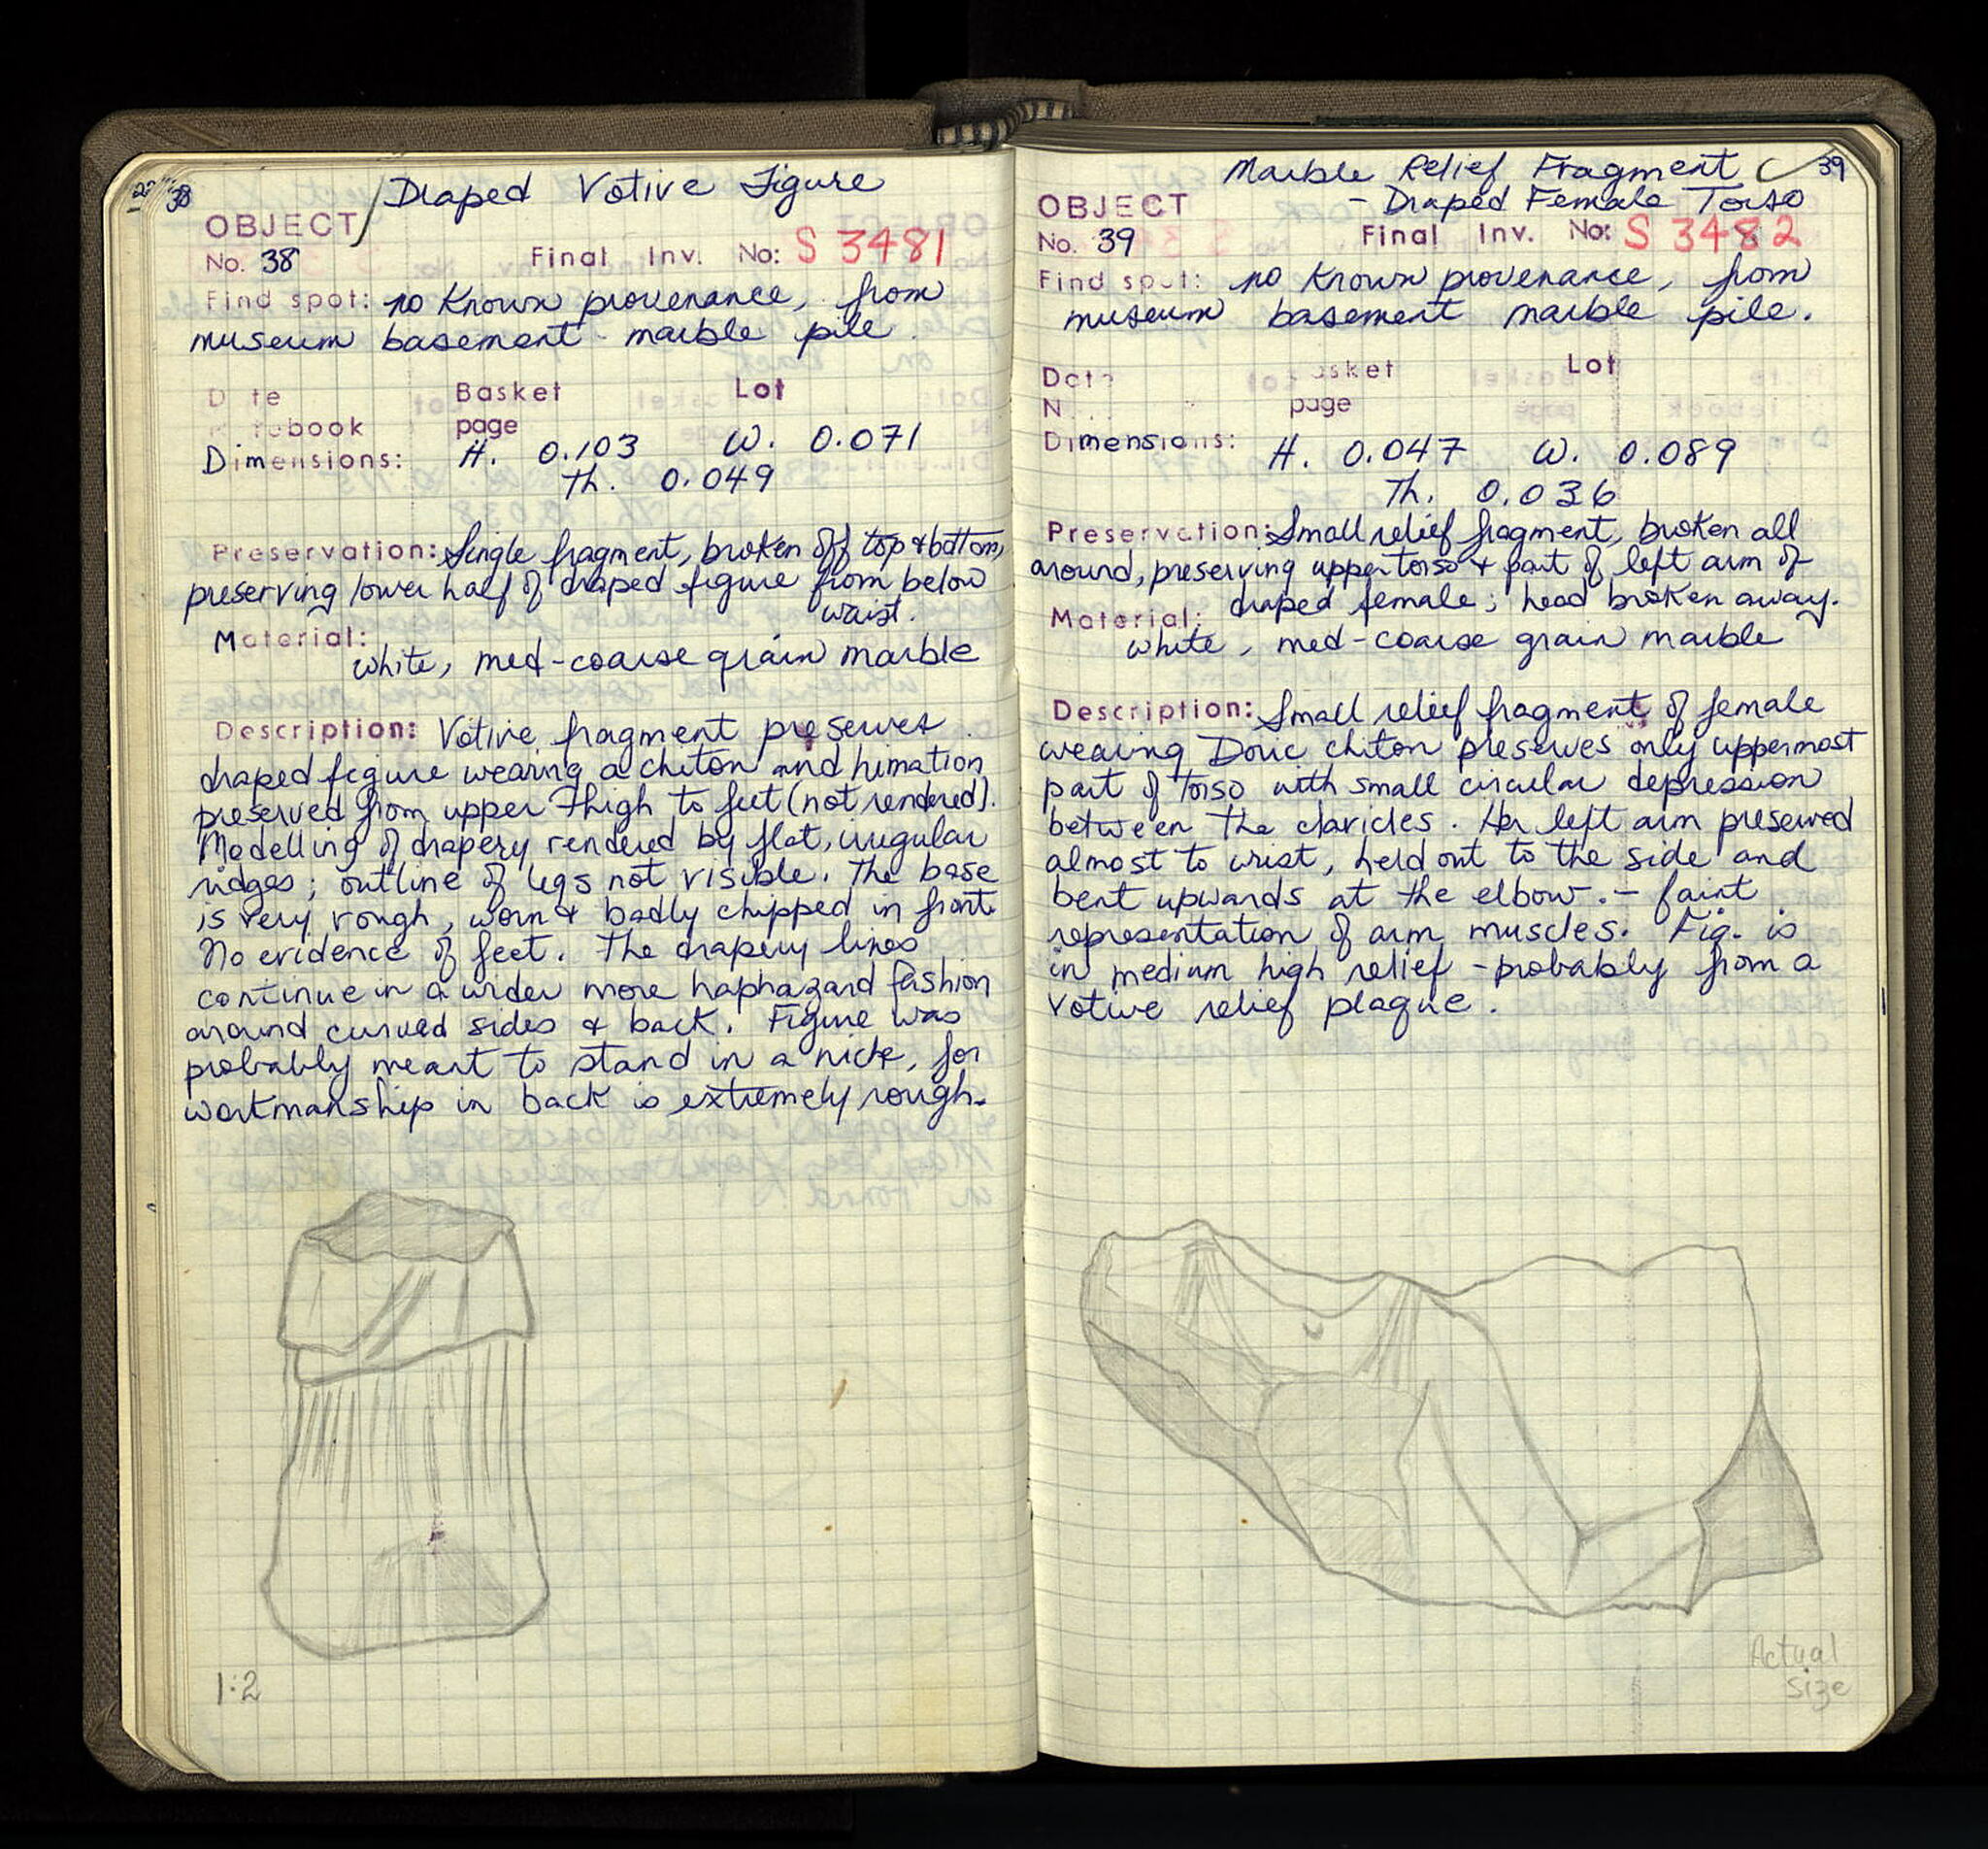 38
Draped Votive Figure
OBJECT
No. 38 Final Inv. No: S 3481
Find spot: no known provenance, from
museum basement - marble pile.
D te Basket Lot
tebook page
Dimensions: H. 0.103 W. 0.071
Th. 0.049
Preservation: Single fragment, broken off top & bottom,
preserving lower half of draped figure from below
waist.
Material:
white, med-coarse grain marble
Description: Votive fragment preserves
draped figure wearing a chiton and himation
preserved from upper thigh to feet (not rendered).
Modelling of drapery rendered by flat, irregular
ridges; outline of legs not visible. The base
is very rough, worn & badly chipped in front.
No evidence of feet. The drapery lines
continue in a wider more haphazard fashion
around curved sides & back. Figure was
probably meant to stand in a niche, for
workmanship in back is extremely rough.
1:2
Marble Relief Fragment 39
OBJECT - Draped Female Torso
No. 39 Final Inv. No: S 3482
Find spot: no known provenance, from
museum basement marble pile.
Dat asket Lot
N page
Dimensions: H. 0.047 W. 0.089
Th. 0.036
Preservation: Small relief fragment, broken all
around, preserving upper torso & part of left arm of
draped female; head broken away.
Material:
white, med-coarse grain marble
Description: Small relief fragment of female
wearing Doric chiton preserves only uppermost
part of torso with small circular depression
between the clavicles. Her left arm preserved
almost to wrist, held out to the side and
bent upwards at the elbow. - faint
representation of arm muscles. Fig. is
in medium high relief - probably from a
votive relief plaque.
Actual
size